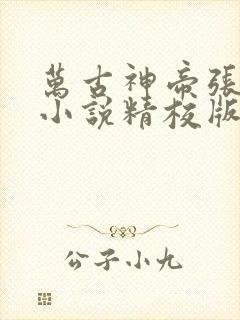 萬古神帝張
小說精校版
公子小九